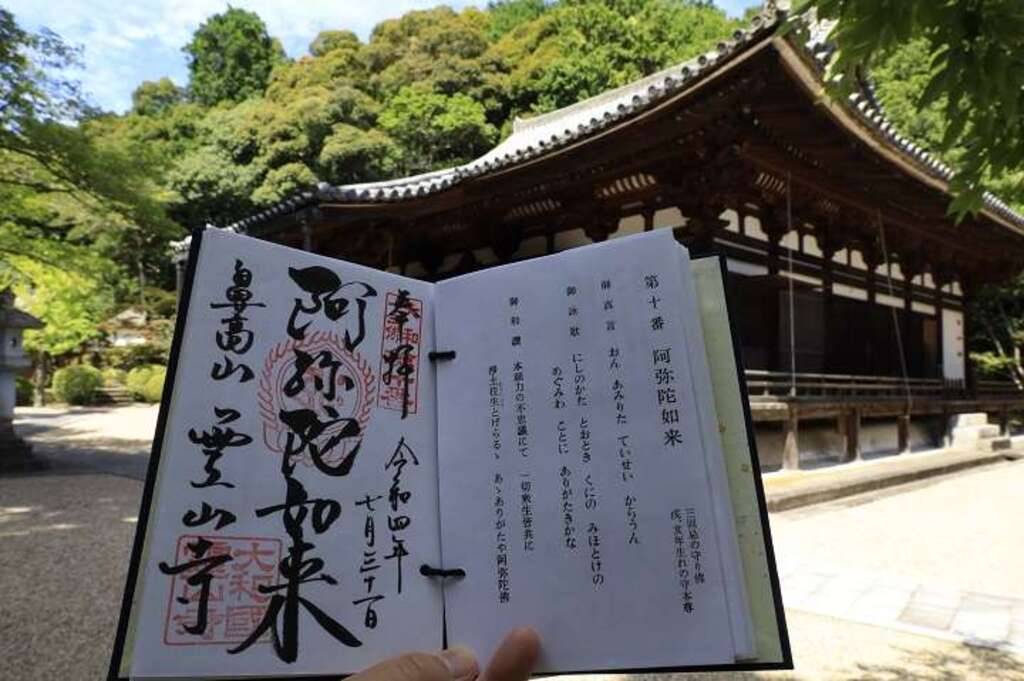 第十番 阿弥陀如来
三回忌の守り佛
戌、亥年生れの守本尊
御真言 おん あみりた ていせい からうん
御詠歌 にしのかた とおとき くにの みほとけの
めぐみわ ことに ありがたきかな
御和讃 本願力の不思議にて 一切衆生皆共に
浄土往生とげらるゝ あゝありがたや阿弥陀佛
奉拝 令和四年
七月三十一日
阿弥陀如来
鼻高山 霊山寺
大和國
霊山寺